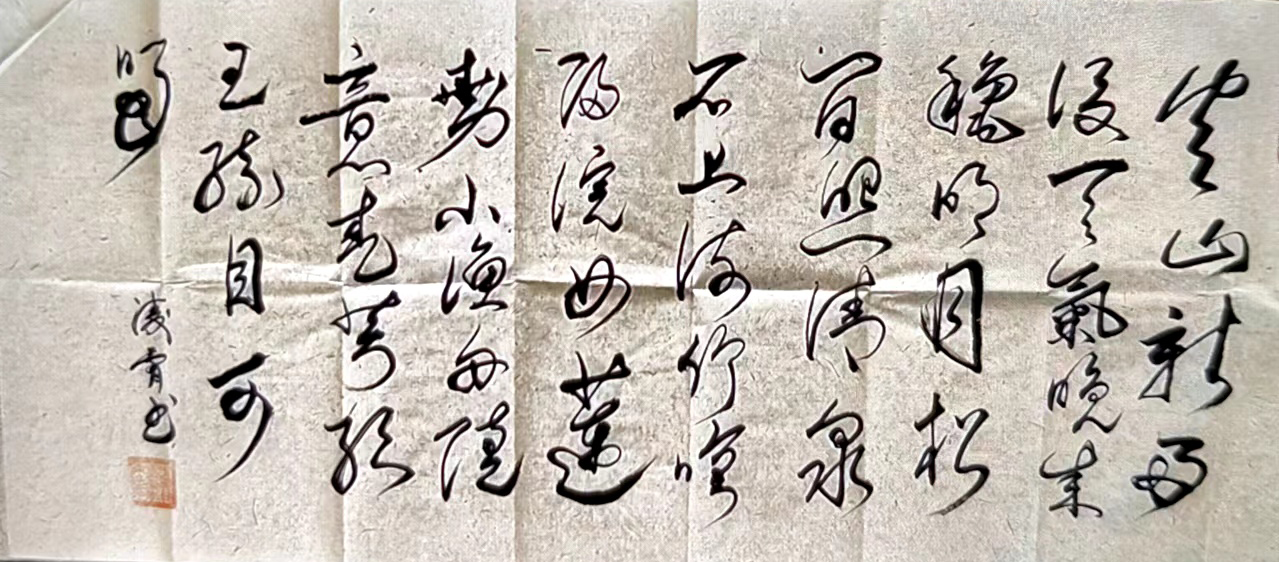 空山新雨
後天氣晚來
穐明月松
间照清泉
石上流竹喧
歸浣女蓮
動小渔舟隨
意春芳歇
王孫自可
留
淩霄书